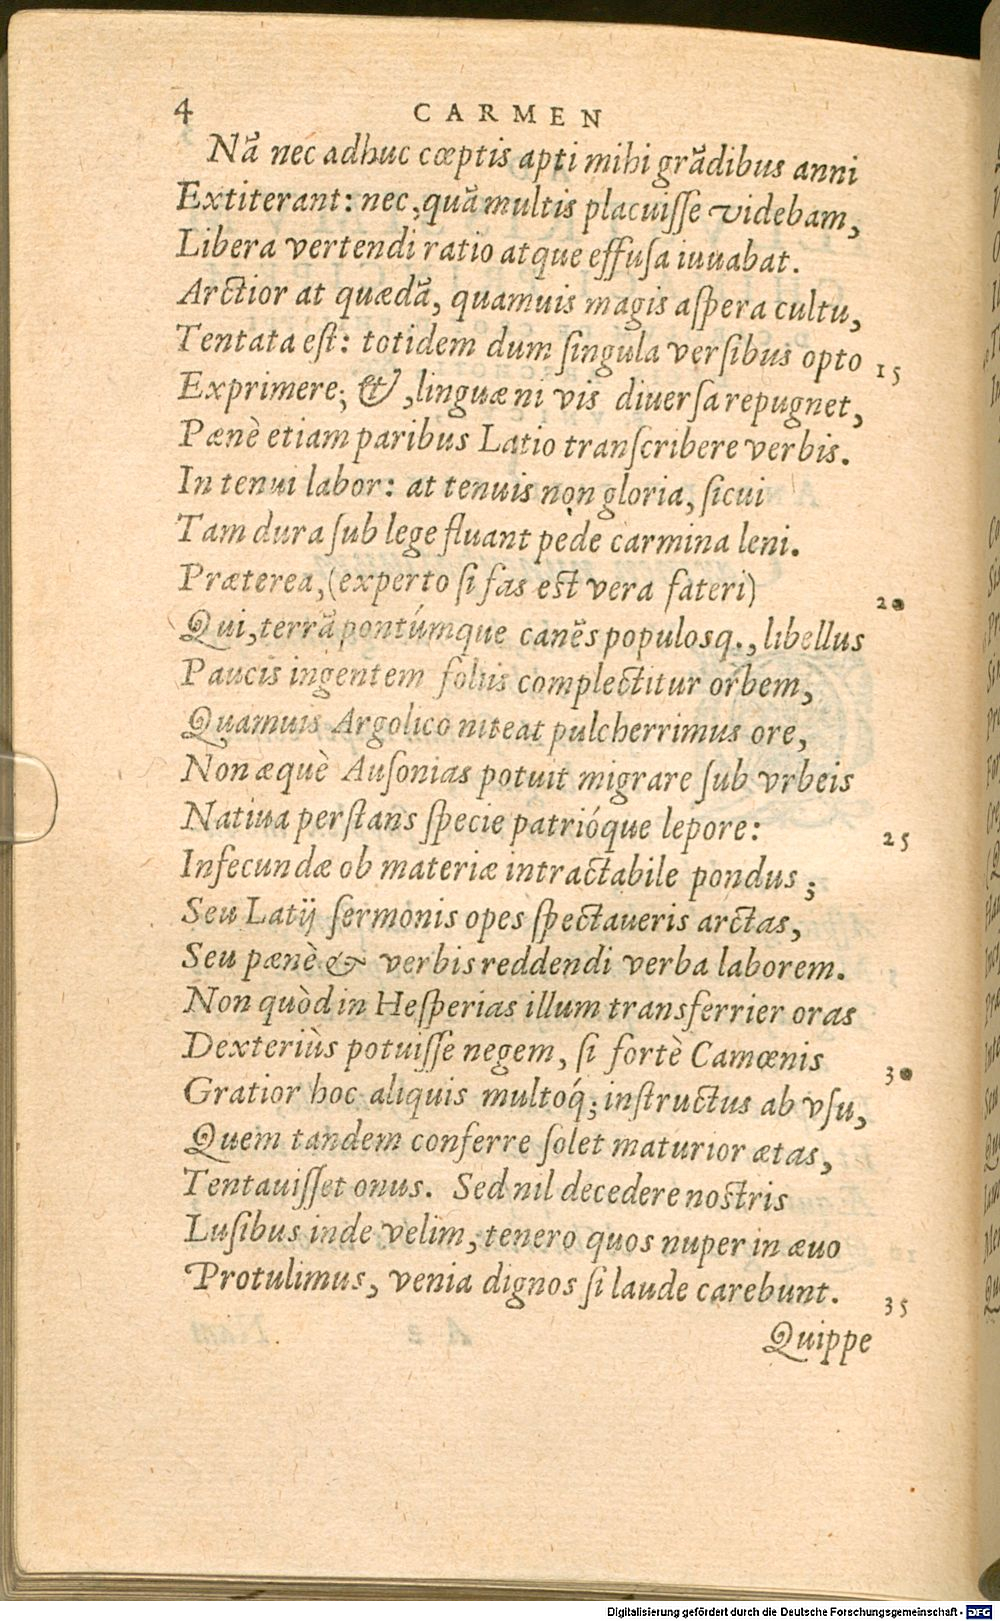 4 CARMEN
Nã nec adhuc cœptis apti mihi grãdibus anni
Extiterant: nec, quã multis placuiſſe videbam,
Libera vertendi ratio atque effuſa iuuabat.
Arctior at quædã, quamuis magis aſpera cultu,
Tentata eſt: totidem dum ſingula verſibus opto 15
Exprimere; &, linguæ ni vis diuerſa repugnet,
Pænè etiam paribus Latio tranſcribere verbis.
In tenui labor: at tenuis non gloria, ſicui
Tam dura ſub lege fluant pede carmina leni.
Præterea, (experto ſi fas eſt vera fateri) 20
Qui, terrã pontúmque canẽs populosq., libellus
Paucis ingentem foliis complectitur orbem,
Quamuis Argolico niteat pulcherrimus ore,
Non æquè Auſonias potuit migrare ſub vrbeis
Natiua perſtans ſpecie patrióque lepore: 25
Infecundæ ob materiæ intractabile pondus;
Seu Latij ſermonis opes ſpectaueris arctas,
Seu pænè & verbis reddendi verba laborem.
Non quòd in Heſperias illum transferrier oras
Dexteriùs potuiſſe negem, ſi fortè Camœnis 30
Gratior hoc aliquis multoq́; inſtructus ab vſu,
Quem tandem conferre ſolet maturior ætas,
Tentauiſſet onus. Sed nil decedere noſtris
Luſibus inde velim, tenero quos nuper in æuo
Protulimus, venia dignos ſi laude carebunt. 35
Quippe
Digitalisierung gefördert durch die Deutsche Forschungsgemeinschaft - DFG